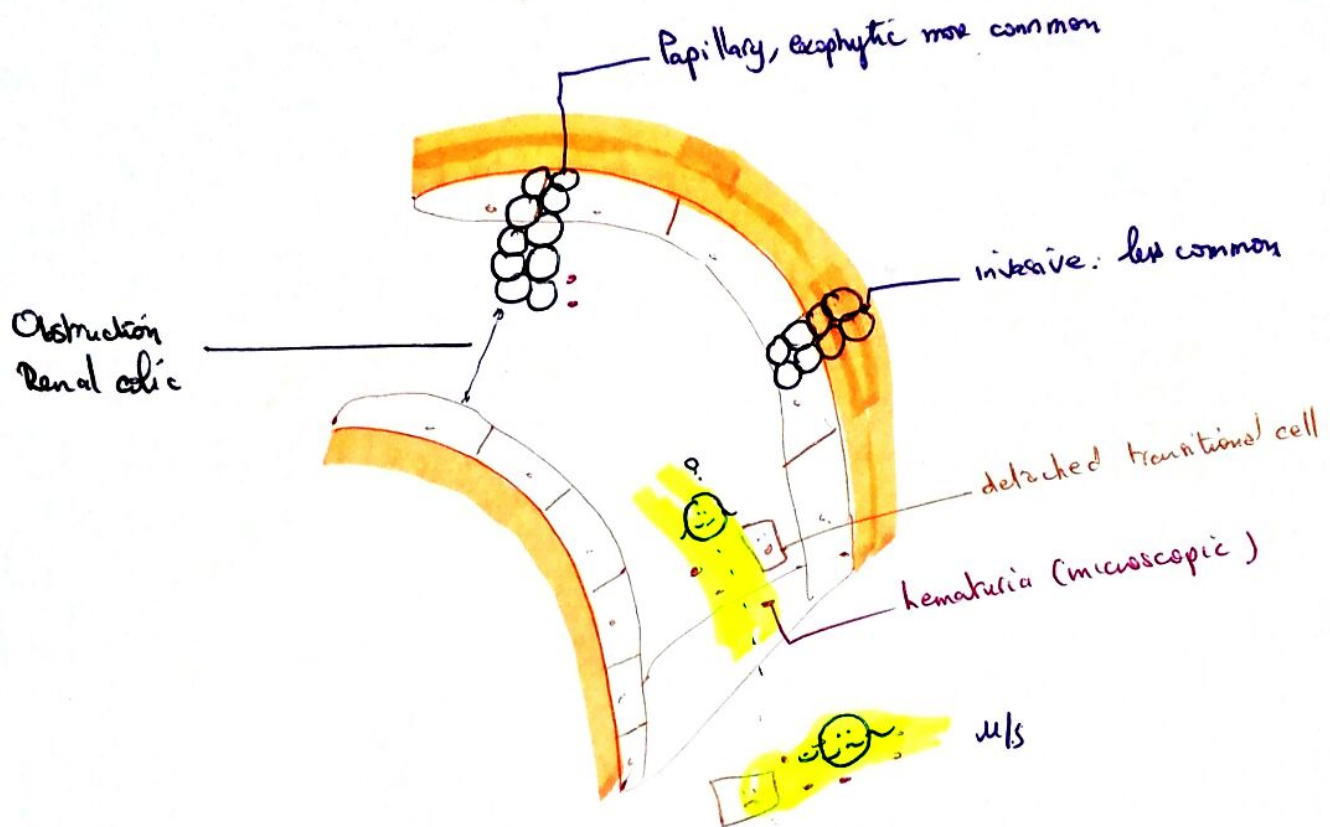 Papillary, exophytic more common
invasive: less common
Obstruction
Renal colic
detached transitional cell
hematuria (microscopic)
?
M/S